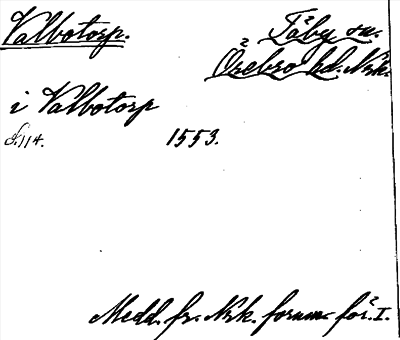 Valbotorp.
Täby sn.
Örebro hd. Nrk.
i Valbotorp
S. 114. 1553.
Medd. fr. Nrk. fornm. för. I.